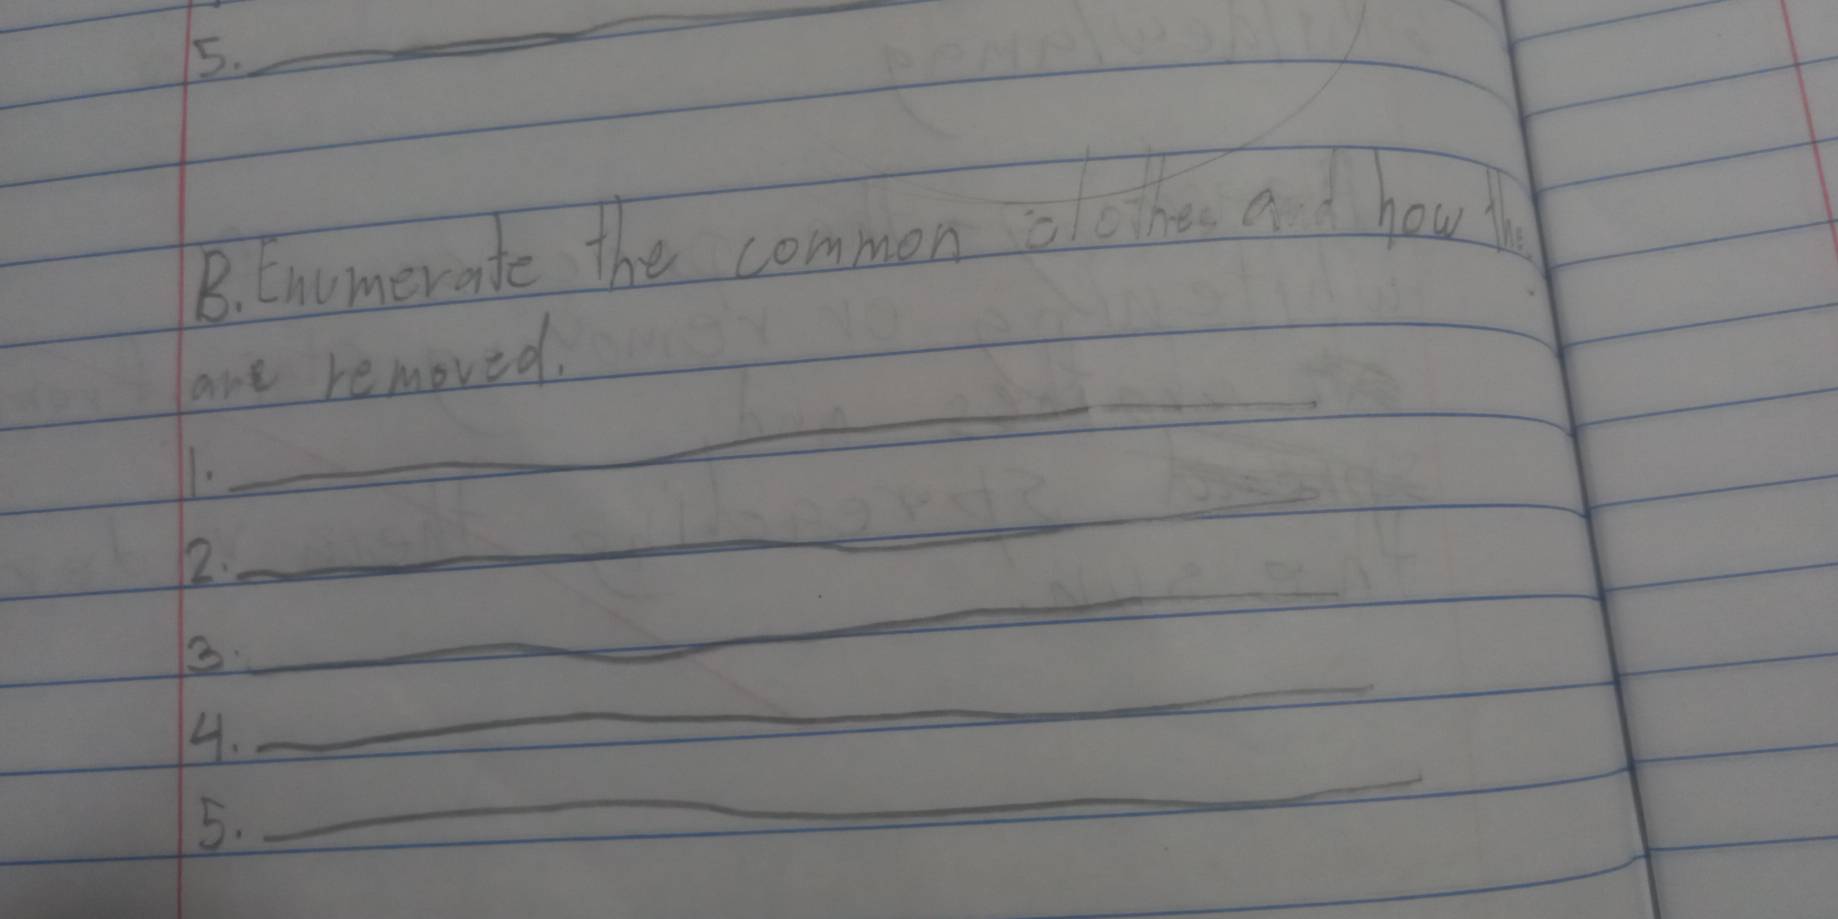 5.
B. Enumerate the common clothes and how the
are removed.
1.
2.
3.
4.
5.